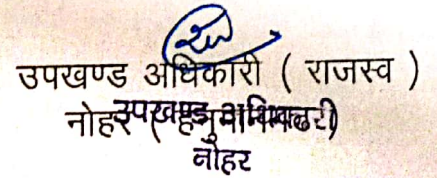 उपखण्ड अधिकारी ( राजस्व )
नोहर (हनुमानगढ़)
उपखण्ड अधिकारी
नोहर